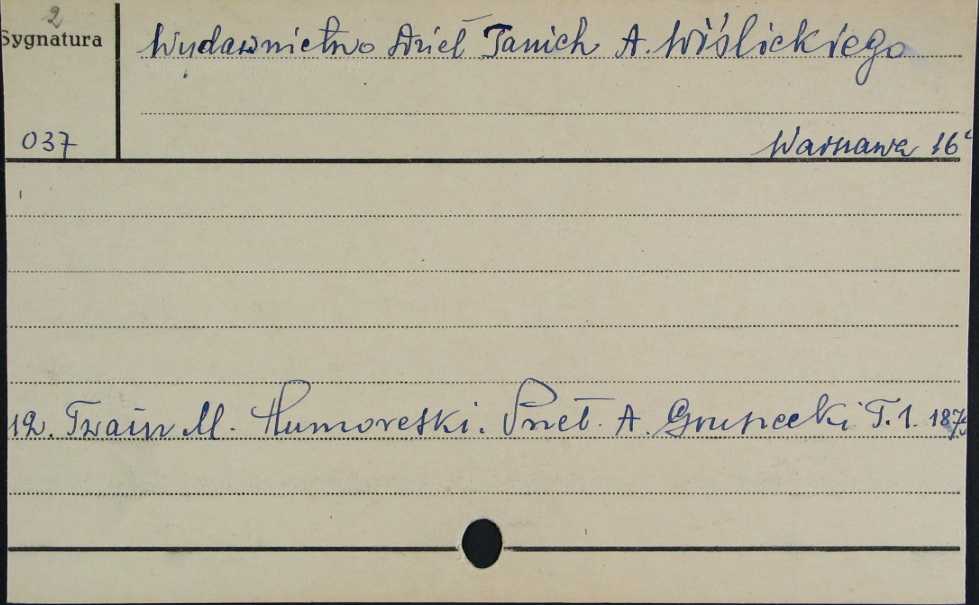 2
Sygnatura
Wydawnictwo Dzieł Tanich A. Wiślickiego
037
Warszawa 16°
12. Twain M. Humoreski. Przeł. A. T. 1. 187